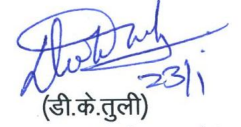 23/1
(डी.के.तुली)